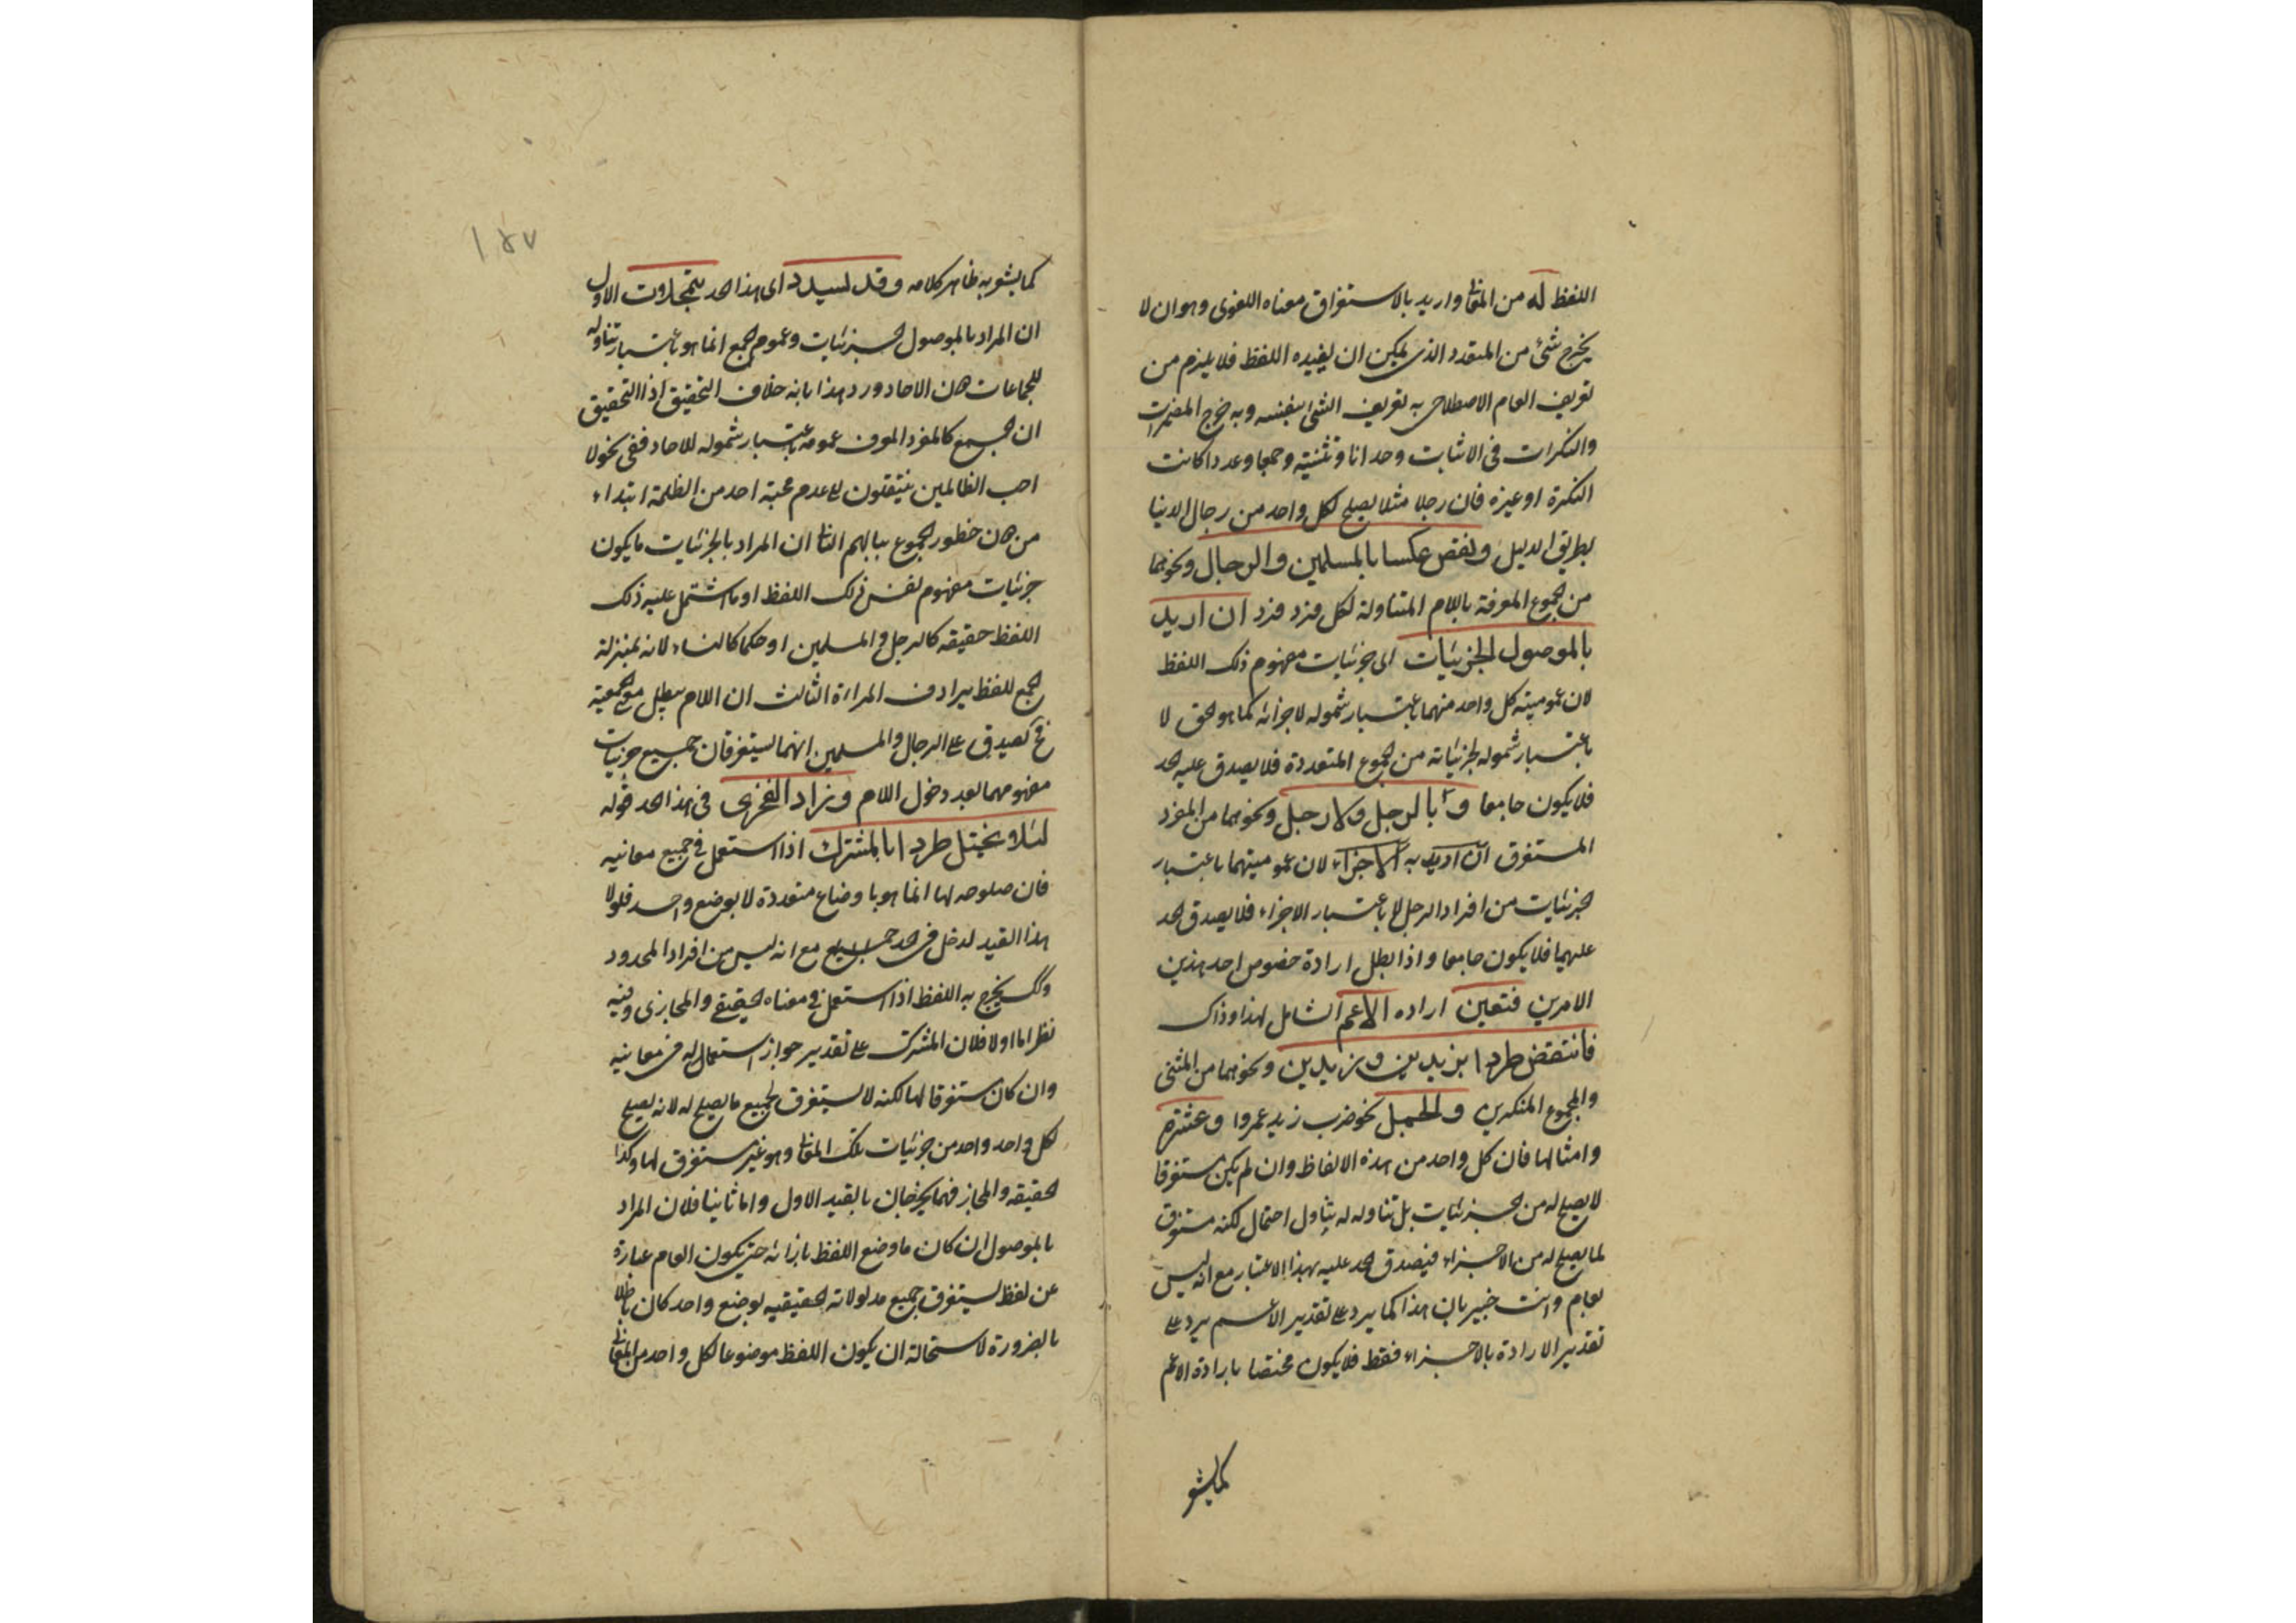 اللفظ له من المعانى واريد بالاستغراق معناه اللغوى وهو ان لا
يخرج شئ من المتعدد الذى يمكن ان يفيده اللفظ فلا يلزم من
تعريف العام الاصطلاحى به تعريف الشئ بنفسه وبه خرج المضمرات
والنكرات فى الاثبات وحدانا وتثنية وجمعا وعددا كانت
النكرة او غيره فان رجلا مثلا يصلح لكل واحد من رجال الدنيا
بطريق البدل ونقض عكسا بالمسلمين والرجال ونحوهما
من الجموع المعرفة باللام المتناولة لكل فرد فرد ان اريد
بالموصول الجزئيات اى جزئيات مفهوم ذلك اللفظ
لان عمومية كل واحد منهما باعتبار شموله لاجزائه كما هو الحق لا
باعتبار شموله لجزئياته من الجموع المتعددة فلا يصدق عليه الحد
فلا يكون جامعا و بالرجل ولا رجل ونحوهما من المفرد
المستغرق ان اريد به الاجزاء لان عموميتهما باعتبار
الجزئيات من افراد الرجل لا باعتبار الاجزاء فلا يصدق الحد
عليهما فلا يكون جامعا واذا بطل ارادة خصوص احد هذين
الامرين فتعين اراده الاعم الشامل لهذا وذاك
فانتقض طردا بزيدين وزيدين ونحوهما من المثنى
والمجموع المنكرين والجمل نحو ضرب زيد عمروا وعشرة
وامثالها فان كل واحد من هذه الالفاظ وان لم يكن مستغرقا
لا يصلح له من الجزئيات بل تناوله له تناول احتمال لكنه مستغرق
لما يصلح له من الاجزاء فيصدق الحد عليه بهذا الاعتبار مع انه ليس
بعام وانت خبير بان هذا كما يرد على تقدير الاعم يرد على
تقدير الارادة بالاجزاء فقط فلا يكون مختصا بارادة الاعم
كما يشعر
١٤٧
كما يشعر به ظاهر كلامه وقد يسدد اى هذا الحد بتمحلات الاول
ان المراد بالموصول الجزئيات وعموم الجمع انما هو باعتبار تناوله
للجماعات دون الاحاد ورد هذا بانه خلاف التحقيق اذ التحقيق
ان الجمع كالمفرد المعرف عمومه باعتبار شموله للاحاد ففى نحو لا
احب الظالمين ينتقلون الى عدم محبة احد من الظلمة ابتداء
من دون خطور الجموع ببالهم الثانى ان المراد بالجزئيات ما يكون
جزئيات مفهوم نفس ذلك اللفظ او ما اشتمل عليه ذلك
اللفظ حقيقه كالرجل والمسلمين او حكما كالنساء لانه بمنزلة
الجمع للفظ يرادف المراءة الثالث ان اللام يبطل معنى الجمعية
فح يصدق على الرجال والمسلمين انهما يستغرقان جميع جزئيات
مفهومهما بعد دخول اللام وزاد الفخرى فى هذا الحد قوله
لئلا يختل طردا بالمشترك اذا استعمل فى جميع معانيه
فان صلوحه لها انما هو باوضاع متعددة لا بوضع واحد فلولا
هذا القيد لدخل فى الحد مع انه ليس من افراد المحدود
وكك يخرج به اللفظ اذا استعمل فى معناه الحقيقى والمجازى وفيه
نظر اما اولا فلان المشترك على تقدير جواز استعماله فى معانيه
وان كان مستغرقا لها لكنه لا يستغرق لجميع ما يصلح له لانه يصلح
لكل واحد واحد من جزئيات تلك المعانى وهو غير مستغرق لها وكذا
الحقيقه والمجاز فهما يخرجان بالقيد الاول واما ثانيا فلان المراد
بالموصول ان كان ما وضع اللفظ بازائه حتى يكون العام عبارة
عن لفظ يستغرق جميع مدلولاته الحقيقيه بوضع واحد كان باطلا
بالضرورة لاستحالة ان يكون اللفظ موضوعا لكل واحد من المعانى